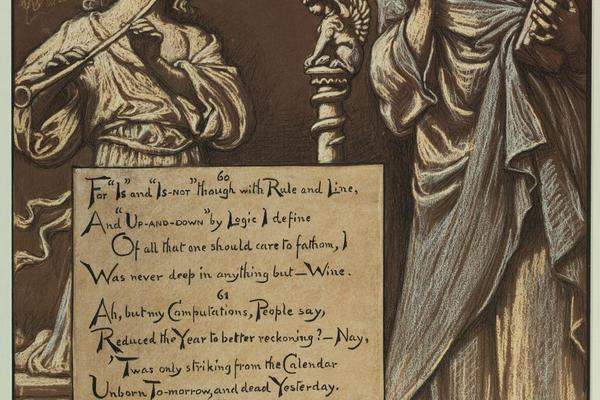 60
For "Is" and "Is-not" though with Rule and Line,
And "Up-and-down" by Logic I define
Of all that one should care to fathom, I
Was never deep in anything but—Wine.
61
Ah, but my Computations, People say,
Reduced the Year to better reckoning?—Nay,
'Twas only striking from the Calendar
Unborn To-morrow, and dead Yesterday.